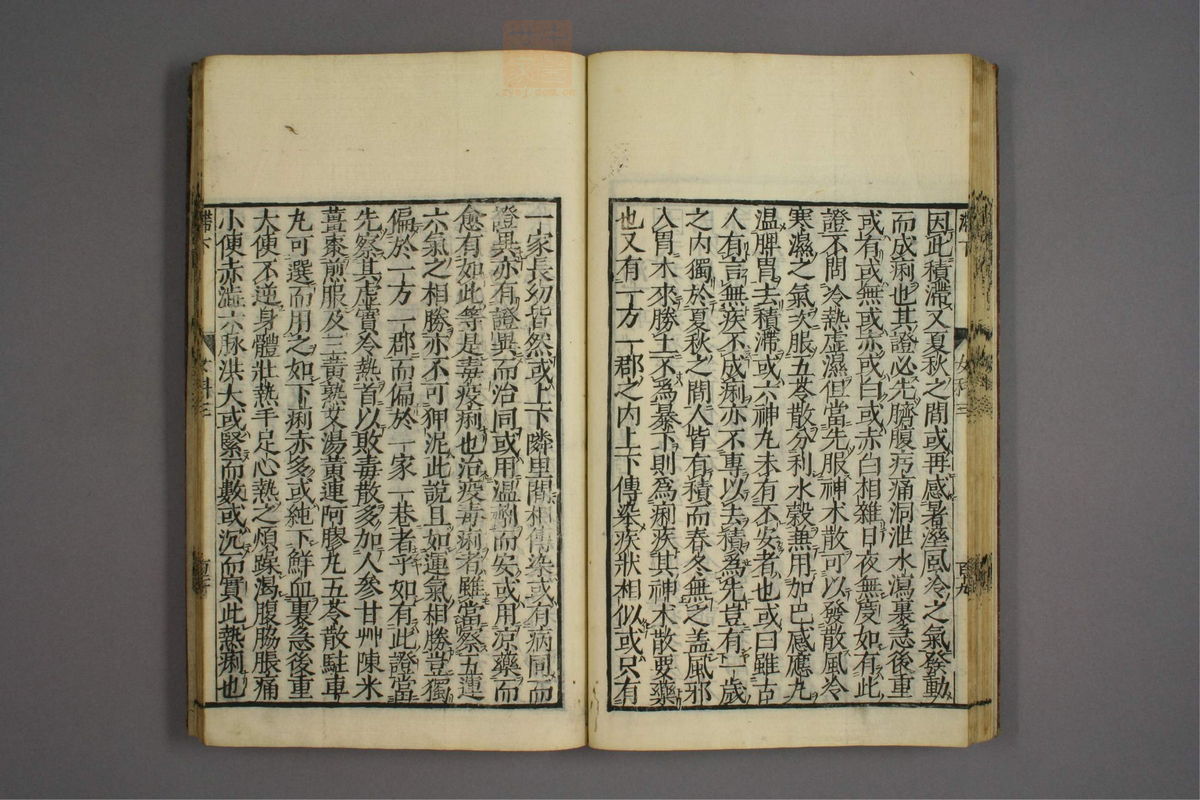 因此積滯又夏秋之間或再感暑溼風冷之氣發動
而成痢也其證必先臍腹疞痛洞泄水瀉裏急後重
或有或無或赤或白或赤白相雜日夜無度如有此
證不問冷熱虛濕但當先服神朮散可以發散風冷
寒濕之氣次服五苓散分利水穀無用加巴感應丸
温脾胃去積滯或六神丸未有不安者也或曰雖古
人有言無疾不成痢亦不專以去積爲先豈有一歲
之内獨於夏秋之間人皆有積而春冬無之盖風邪
入胃木來勝土不爲暴下則為痢疾其神朮散要藥
也又有一方一郡之内上下傳染疾狀相似或只有
一家長幼皆然或上下隣里間相傳染或有病同而
證異亦有證異而治同或用温劑而安或用凉藥而
愈有如此等是毒疫痢也治疫毒痢者雖當察五運
六氣之相勝亦不可狎泥此說且如運氣相勝豈獨
偏於一方一郡而偏於一家一巷者乎如有此證當
先察其虛實冷熱首以敗毒散多加人參甘艸陳米
薑棗煎服及三黄熟艾湯黄連阿膠丸五苓散駐車
丸可選而用之如下痢赤多或純下鮮血裏急後重
大便不逆身體壯熱手足心熱之煩躁渴腹脇脹痛
小便赤澁六脉洪大或緊而數或沉而實此熱痢也
女科三